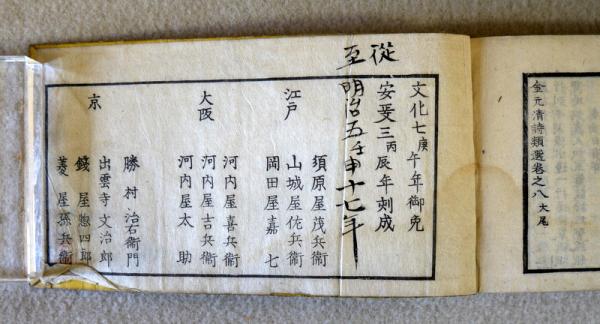 金元清詩類選卷之八 大尾
從
文化七庚午年御免
安政三丙辰年刻成
至明治五壬申十七年
江戸
須原屋茂兵衞
山城屋佐兵衞
岡田屋嘉七
大阪
河内屋喜兵衞
河内屋吉兵衞
河内屋太助
京
勝村治右衞門
出雲寺文治郎
錢屋惣四郎
菱屋孫兵衞